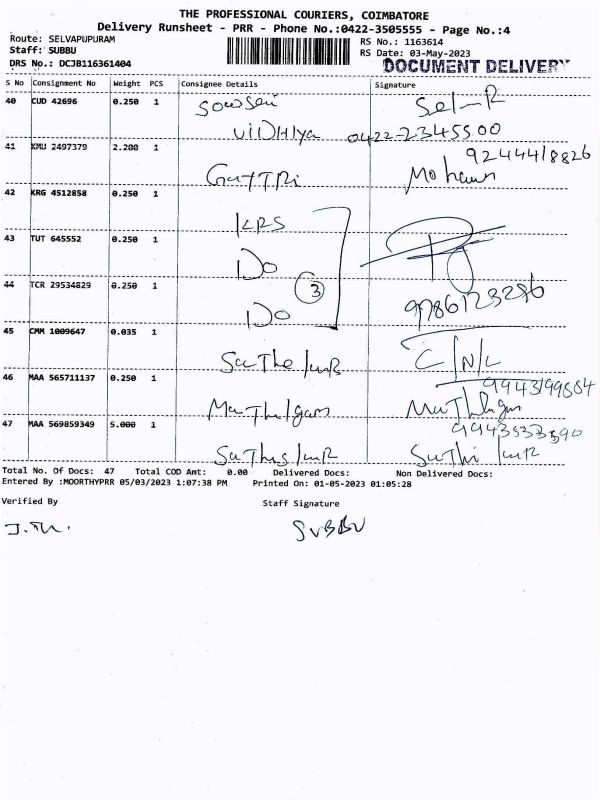 THE PROFESSIONAL COURIERS, COIMBATORE
Delivery Runsheet - PRR - Phone No.:0422-3505555 - Page No.:4
Route: SELVAPUPURAM
Staff: SUBBU
DRS No.: DCJB116361404
RS No.: 1163614
RS Date: 03-May-2023
DOCUMENT DELIVERY
S No Consignment No Weight PCS Consignee Details Signature
40 CUD 42696 0.250 1
Vidhiya 0422-2345500
41 KMU 2497379 2.200 1 9244418826
GayTRi Mohan
42 KRG 4512858 0.250 1
KRS
43 TUT 645552 0.250 1
Do
44 TCR 29534829 0.250 1
3
Do 9786123286
45 CMM 1009647 0.035 1
C/N/L
46 MAA 565711137 0.250 1
47 MAA 569859349 5.000 1
Total No. Of Docs: 47 Total COD Amt: 0.00 Delivered Docs: Non Delivered Docs:
Entered By :MOORTHYPRR 05/03/2023 1:07:38 PM Printed On: 01-05-2023 01:05:28
Verified By Staff Signature
SUBBU